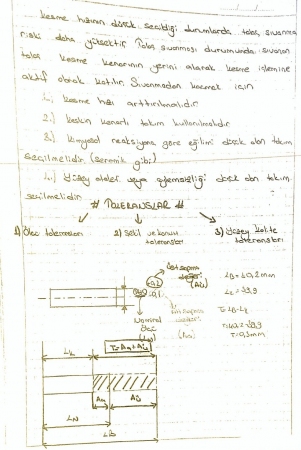 kesme hızının düşük seçildiği durumlarda talaş sıvanma
riski daha yüksektir. Talaş sıvanması durumunda sıvanan
talaş kesme kenarının yerini alarak kesme işlemine
aktif olarak katılır. Sıvanmadan kaçmak için
1.) kesme hızı arttırılmalıdır
2.) keskin kenarlı takım kullanılmalıdır
3.) kimyasal reaksiyona göre eğilimi düşük olan takım
seçilmelidir (seramik gibi)
4.) yüzey veya düşük olan takım
seçilmelidir
# TOLERANSLAR #
1) Ölçü toleransları 2) şekil ve konum toleransları 3) yüzey kalite toleransları
Üst sapma değeri (Aü)
+0,2
-0,1
Alt sapma değeri (Aa)
Nominal ölçü
LB=40,2mm
LK=39,9
T=LB-LK
T=40,2-39,9
T=0,3mm
LK
T=Aa+Aü
Aa Aü
LN
LB